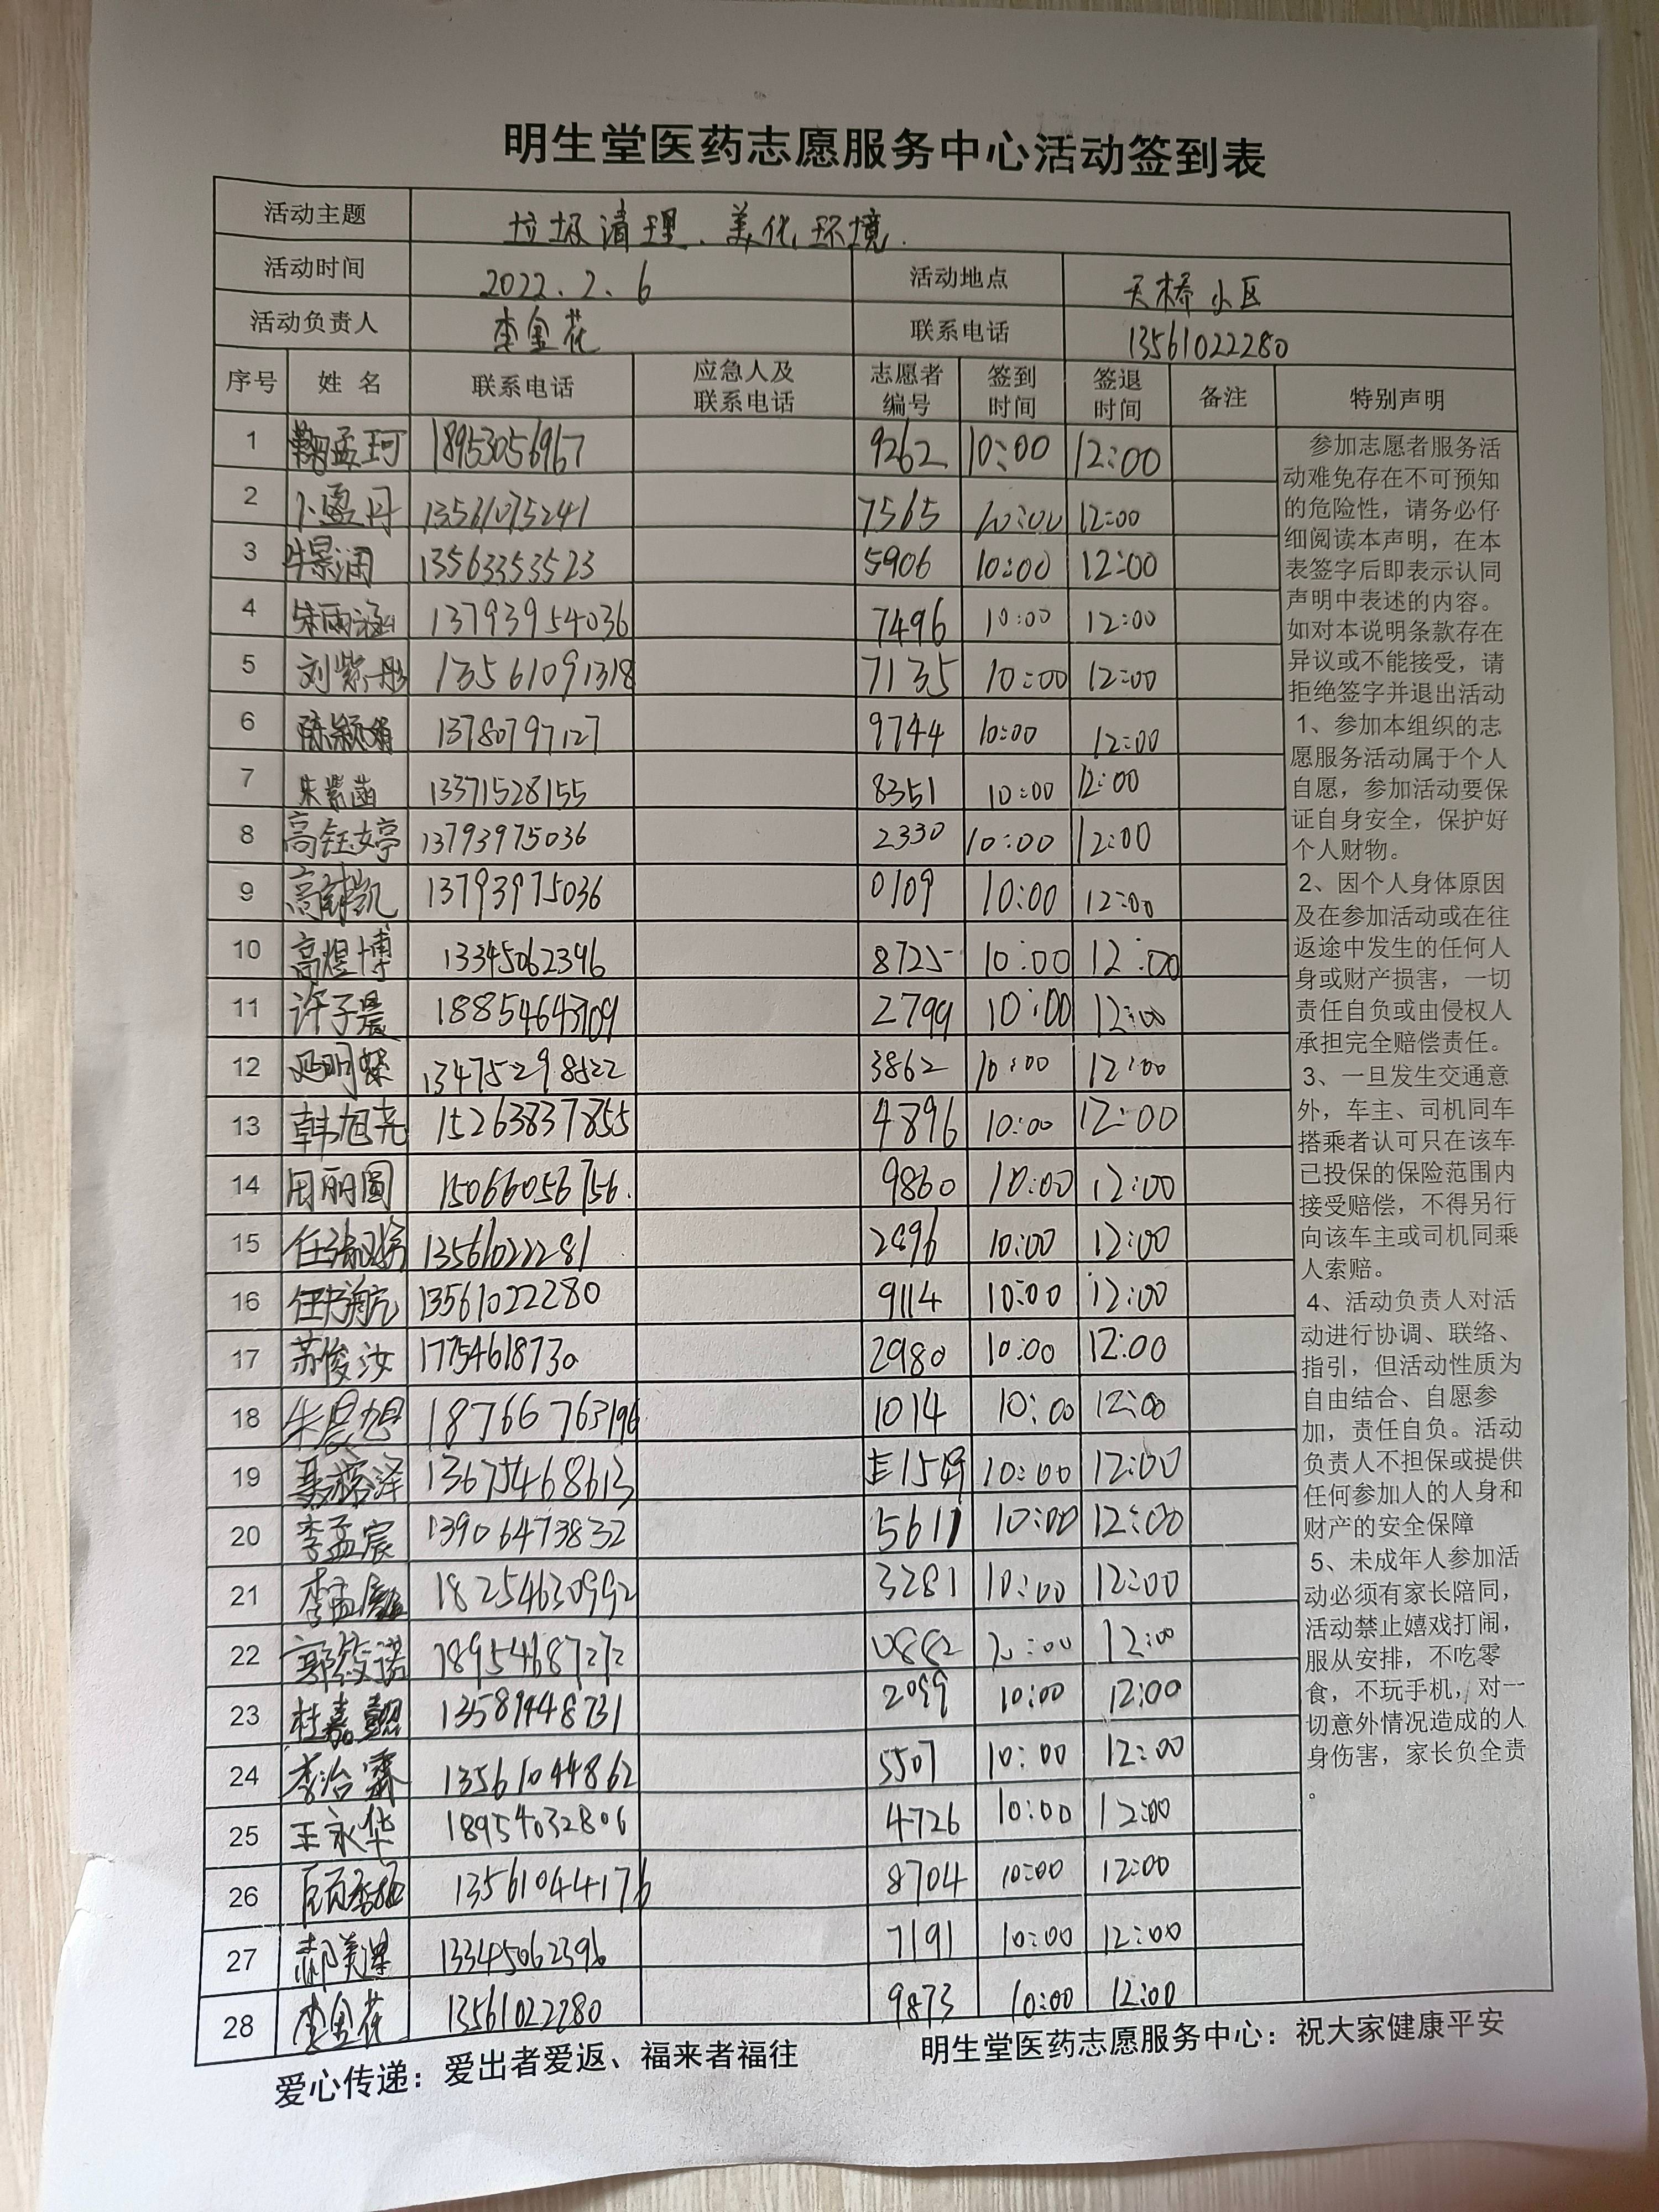 明生堂医药志愿服务中心活动签到表
活动主题 垃圾清理、美化环境.
活动时间 2022.2.6 活动地点 天桥小区
活动负责人 李金花 联系电话 13561022280
序号 姓名 联系电话 应急人及联系电话 志愿者编号 签到时间 签退时间 备注 特别声明
1 孟珂 18953056967 9262 10:00 12:00
2 卜盈丹 13561075241 7565 10:00 12:00
3 牛景润 13563353523 5906 10:00 12:00
4 朱雨涵 13793954036 7496 10:00 12:00
5 刘紫彤 13561091318 7135 10:00 12:00
6 陈颖娟 13780797127 9744 10:00 12:00
7 朱紫菡 13371528155 8351 10:00 12:00
8 高钰婷 13793975036 2330 10:00 12:00
9 高凯 13793975036 0109 10:00 12:00
10 高煜博 13345062396 8725 10:00 12:00
11 许子晨 18854643109 2799 10:00 12:00
12 冯明 13475298522 3862 10:00 12:00
13 韩旭尧 15263837855 4896 10:00 12:00
14 周丽圆 15066056756. 9860 10:00 12:00
15 任 13561022281 2896 10:00 12:00
16 任航 13561022280 9114 10:00 12:00
17 苏俊汝 17754618730 2980 10:00 12:00
18 朱晨旭 18766763196 1014 10:00 12:00
19 聂泽 13675468613 1549 10:00 12:00
20 李孟宸 13906473832 5611 10:00 12:00
21 李孟 18254630992 3281 10:00 12:00
22 郭筱诺 18954687272 0882 10:00 12:00
23 杜嘉懿 13589448731 2099 10:00 12:00
24 李治霖 13561044862 5507 10:00 12:00
25 王永华 18954032806 4726 10:00 12:00
26 顾秀 13561044176 8704 10:00 12:00
27 郝美 13345062396 7191 10:00 12:00
28 李金花 13561022280 9873 10:00 12:00
参加志愿者服务活
动难免存在不可预知
的危险性，请务必仔
细阅读本声明，在本
表签字后即表示认同
声明中表述的内容。
如对本说明条款存在
异议或不能接受，请
拒绝签字并退出活动
1、参加本组织的志
愿服务活动属于个人
自愿，参加活动要保
证自身安全，保护好
个人财物。
2、因个人身体原因
及在参加活动或在往
返途中发生的任何人
身或财产损害，一切
责任自负或由侵权人
承担完全赔偿责任。
3、一旦发生交通意
外，车主、司机同车
搭乘者认可只在该车
已投保的保险范围内
接受赔偿，不得另行
向该车主或司机同乘
人索赔。
4、活动负责人对活
动进行协调、联络、
指引，但活动性质为
自由结合、自愿参
加，责任自负。活动
负责人不担保或提供
任何参加人的人身和
财产的安全保障
5、未成年人参加活
动必须有家长陪同，
活动禁止嬉戏打闹，
服从安排，不吃零
食，不玩手机，对一
切意外情况造成的人
身伤害，家长负全责
。
爱心传递：爱出者爱返、福来者福往 明生堂医药志愿服务中心：祝大家健康平安